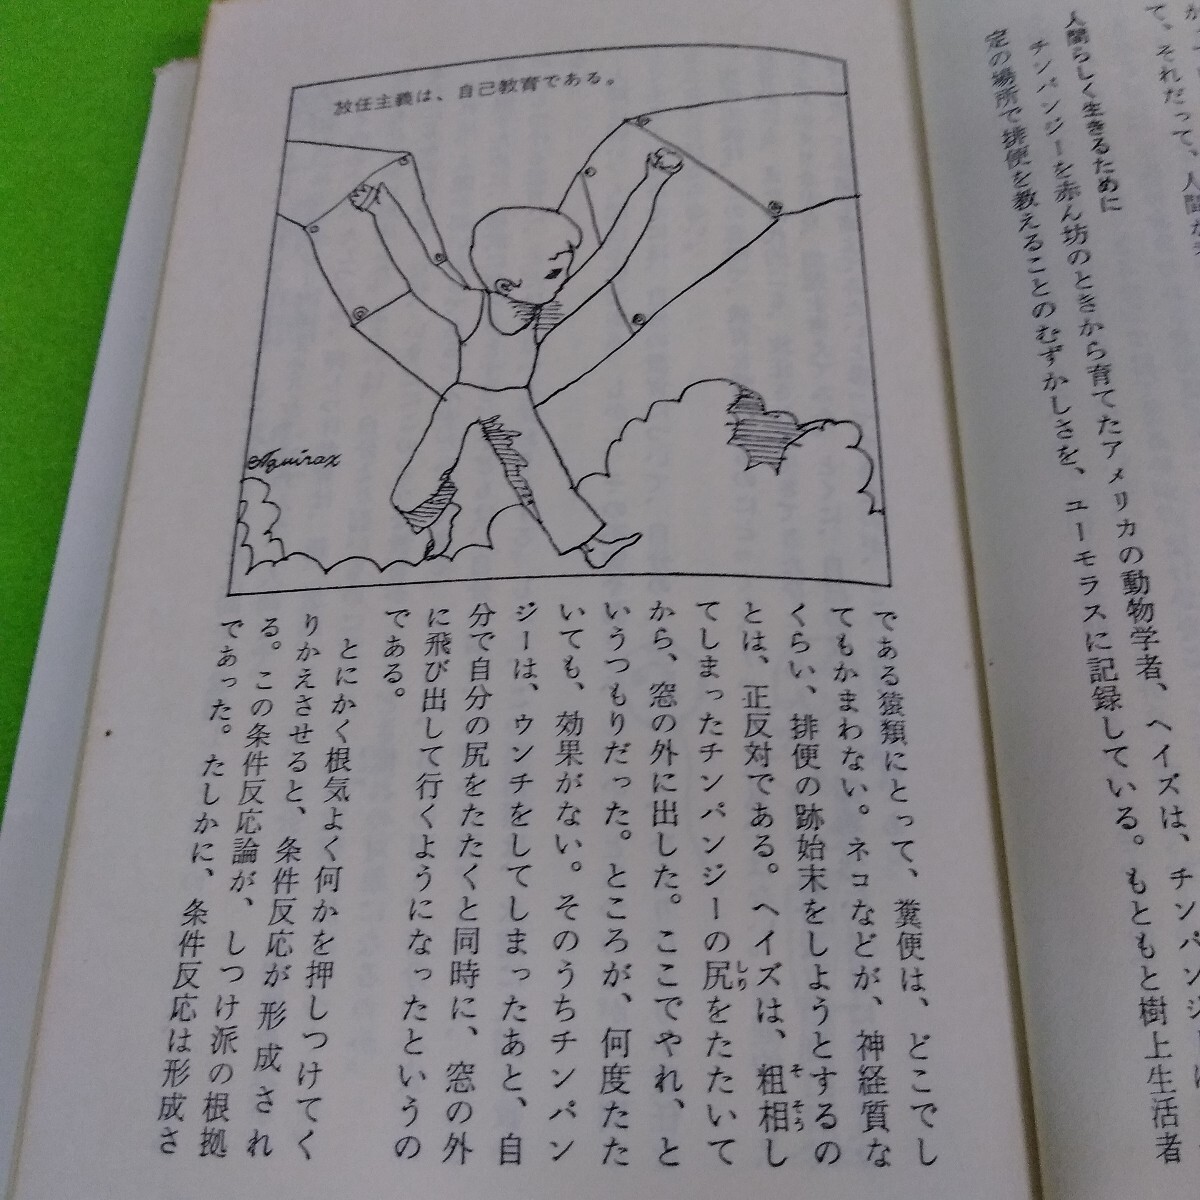 て、それだって、人間が
人間らしく生きるために
チンパンジーを赤ん坊のときから育てたアメリカの動物学者、ヘイズは、チンパンジーに
定の場所で排便を教えることのむずかしさを、ユーモラスに記録している。もともと樹上生活者
放任主義は、自己教育である。
である猿類にとって、糞便は、どこでし
てもかまわない。ネコなどが、神経質な
くらい、排便の跡始末をしようとするの
とは、正反対である。ヘイズは、粗相し
てしまったチンパンジーの尻をたたいて
から、窓の外に出した。ここでやれ、と
いうつもりだった。ところが、何度たた
いても、効果がない。そのうちチンパン
ジーは、ウンチをしてしまったあと、自
分で自分の尻をたたくと同時に、窓の外
に飛び出して行くようになったというの
である。
とにかく根気よく何かを押しつけてく
りかえさせると、条件反応が形成され
る。この条件反応論が、しつけ派の根拠
であった。たしかに、条件反応は形成さ